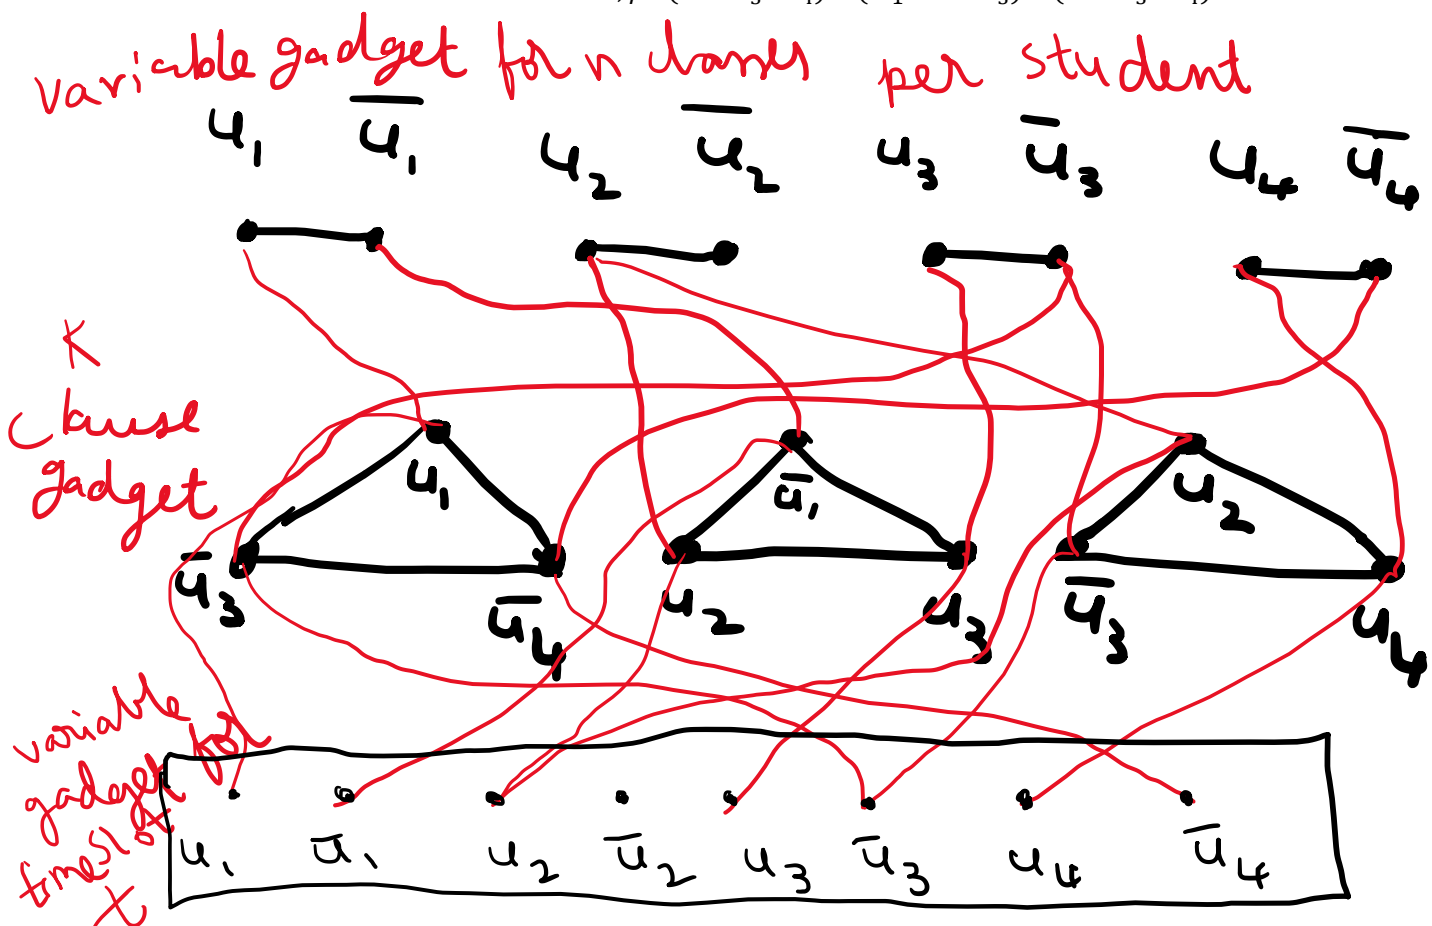 variable gadget for n classes per student
u₁ u̅₁ u₂ u̅₂ u₃ u̅₃ u₄ u̅₄
K
clause
gadget
u₁ u̅₁ u₂
u̅₃ u̅₄ u₂ u₃ u̅₃ u₄
variable
gadget for
timeslot
t
u₁ u̅₁ u₂ u̅₂ u₃ u̅₃ u₄ u̅₄